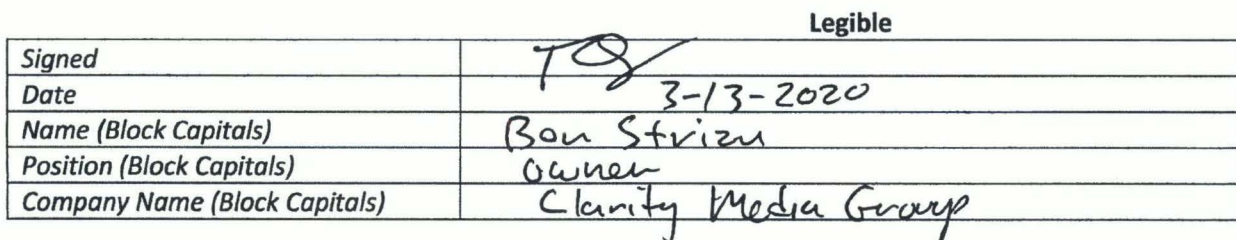 Legible
Signed
Date 3-13-2020
Name (Block Capitals) Bon
Position (Block Capitals) owner
Company Name (Block Capitals) Clarity Media Group